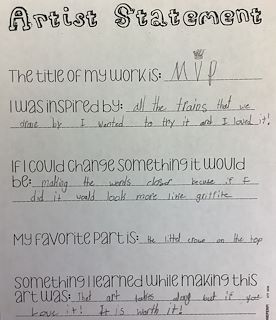 Artist Statement
The title of my work is: MVP
I was inspired by: all the trains that we
drove by I wanted to try it and I loved it!
If I could change something it would
be: making the words closer becuse if I
did it would look more like griffite
My favorite part is: the littel crown on the top
Something I learned while making this
art was: That art takes days but if you
Love it! It is worth it!